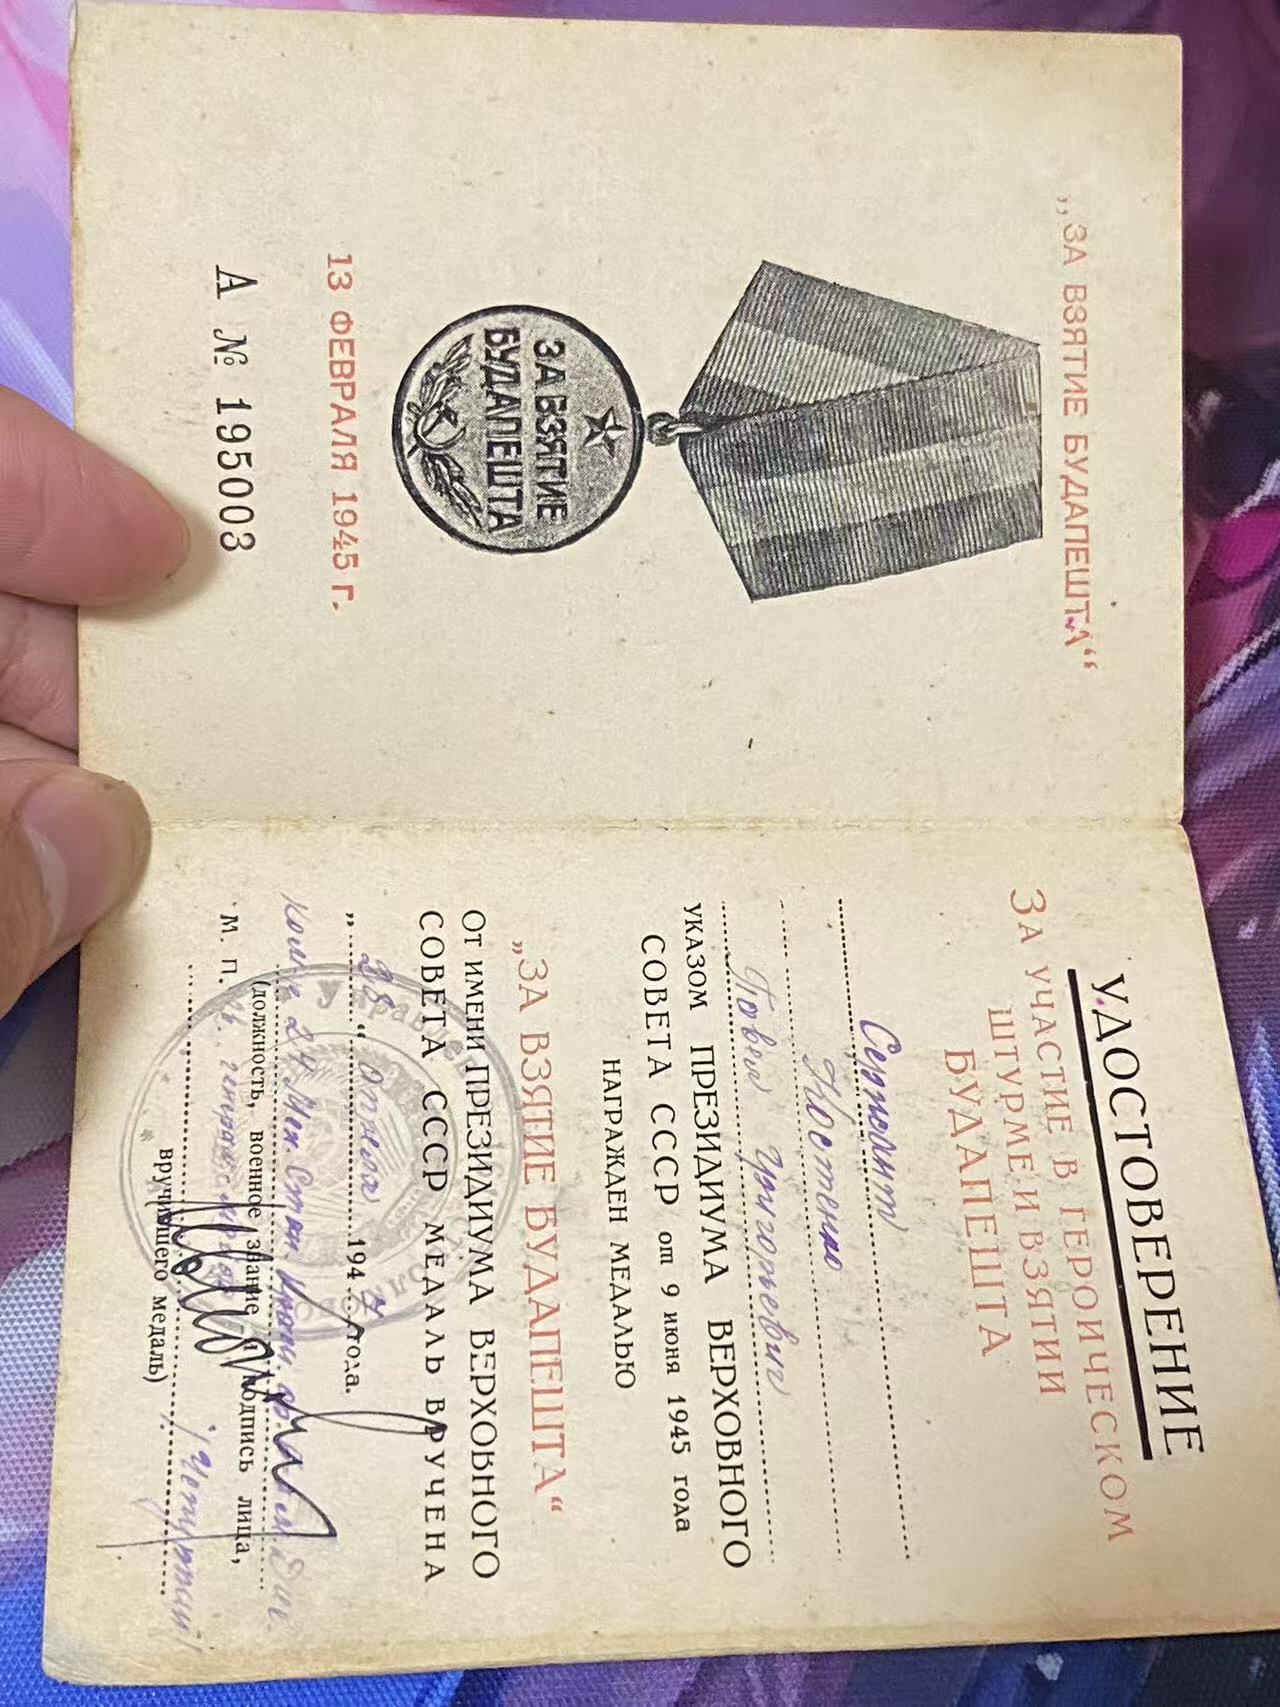 „ЗА ВЗЯТИЕ БУДАПЕШТА“
ЗА ВЗЯТИЕ
БУДАПЕШТА
13 ФЕВРАЛЯ 1945 г.
А № 195003
УДОСТОВЕРЕНИЕ
ЗА УЧАСТИЕ В ГЕРОИЧЕСКОМ
ШТУРМЕ И ВЗЯТИИ
БУДАПЕШТА
Сержант
Костенко
Павел Григорьевич
УКАЗОМ ПРЕЗИДИУМА ВЕРХОВНОГО
СОВЕТА СССР от 9 июня 1945 года
НАГРАЖДЕН МЕДАЛЬЮ
„ЗА ВЗЯТИЕ БУДАПЕШТА“
От имени ПРЕЗИДИУМА ВЕРХОВНОГО
СОВЕТА СССР МЕДАЛЬ ВРУЧЕНА
„28“ Апреля 1947 года.
24 Мех.
М. П. (должность, военное звание и подпись лица,
вручившего медаль)